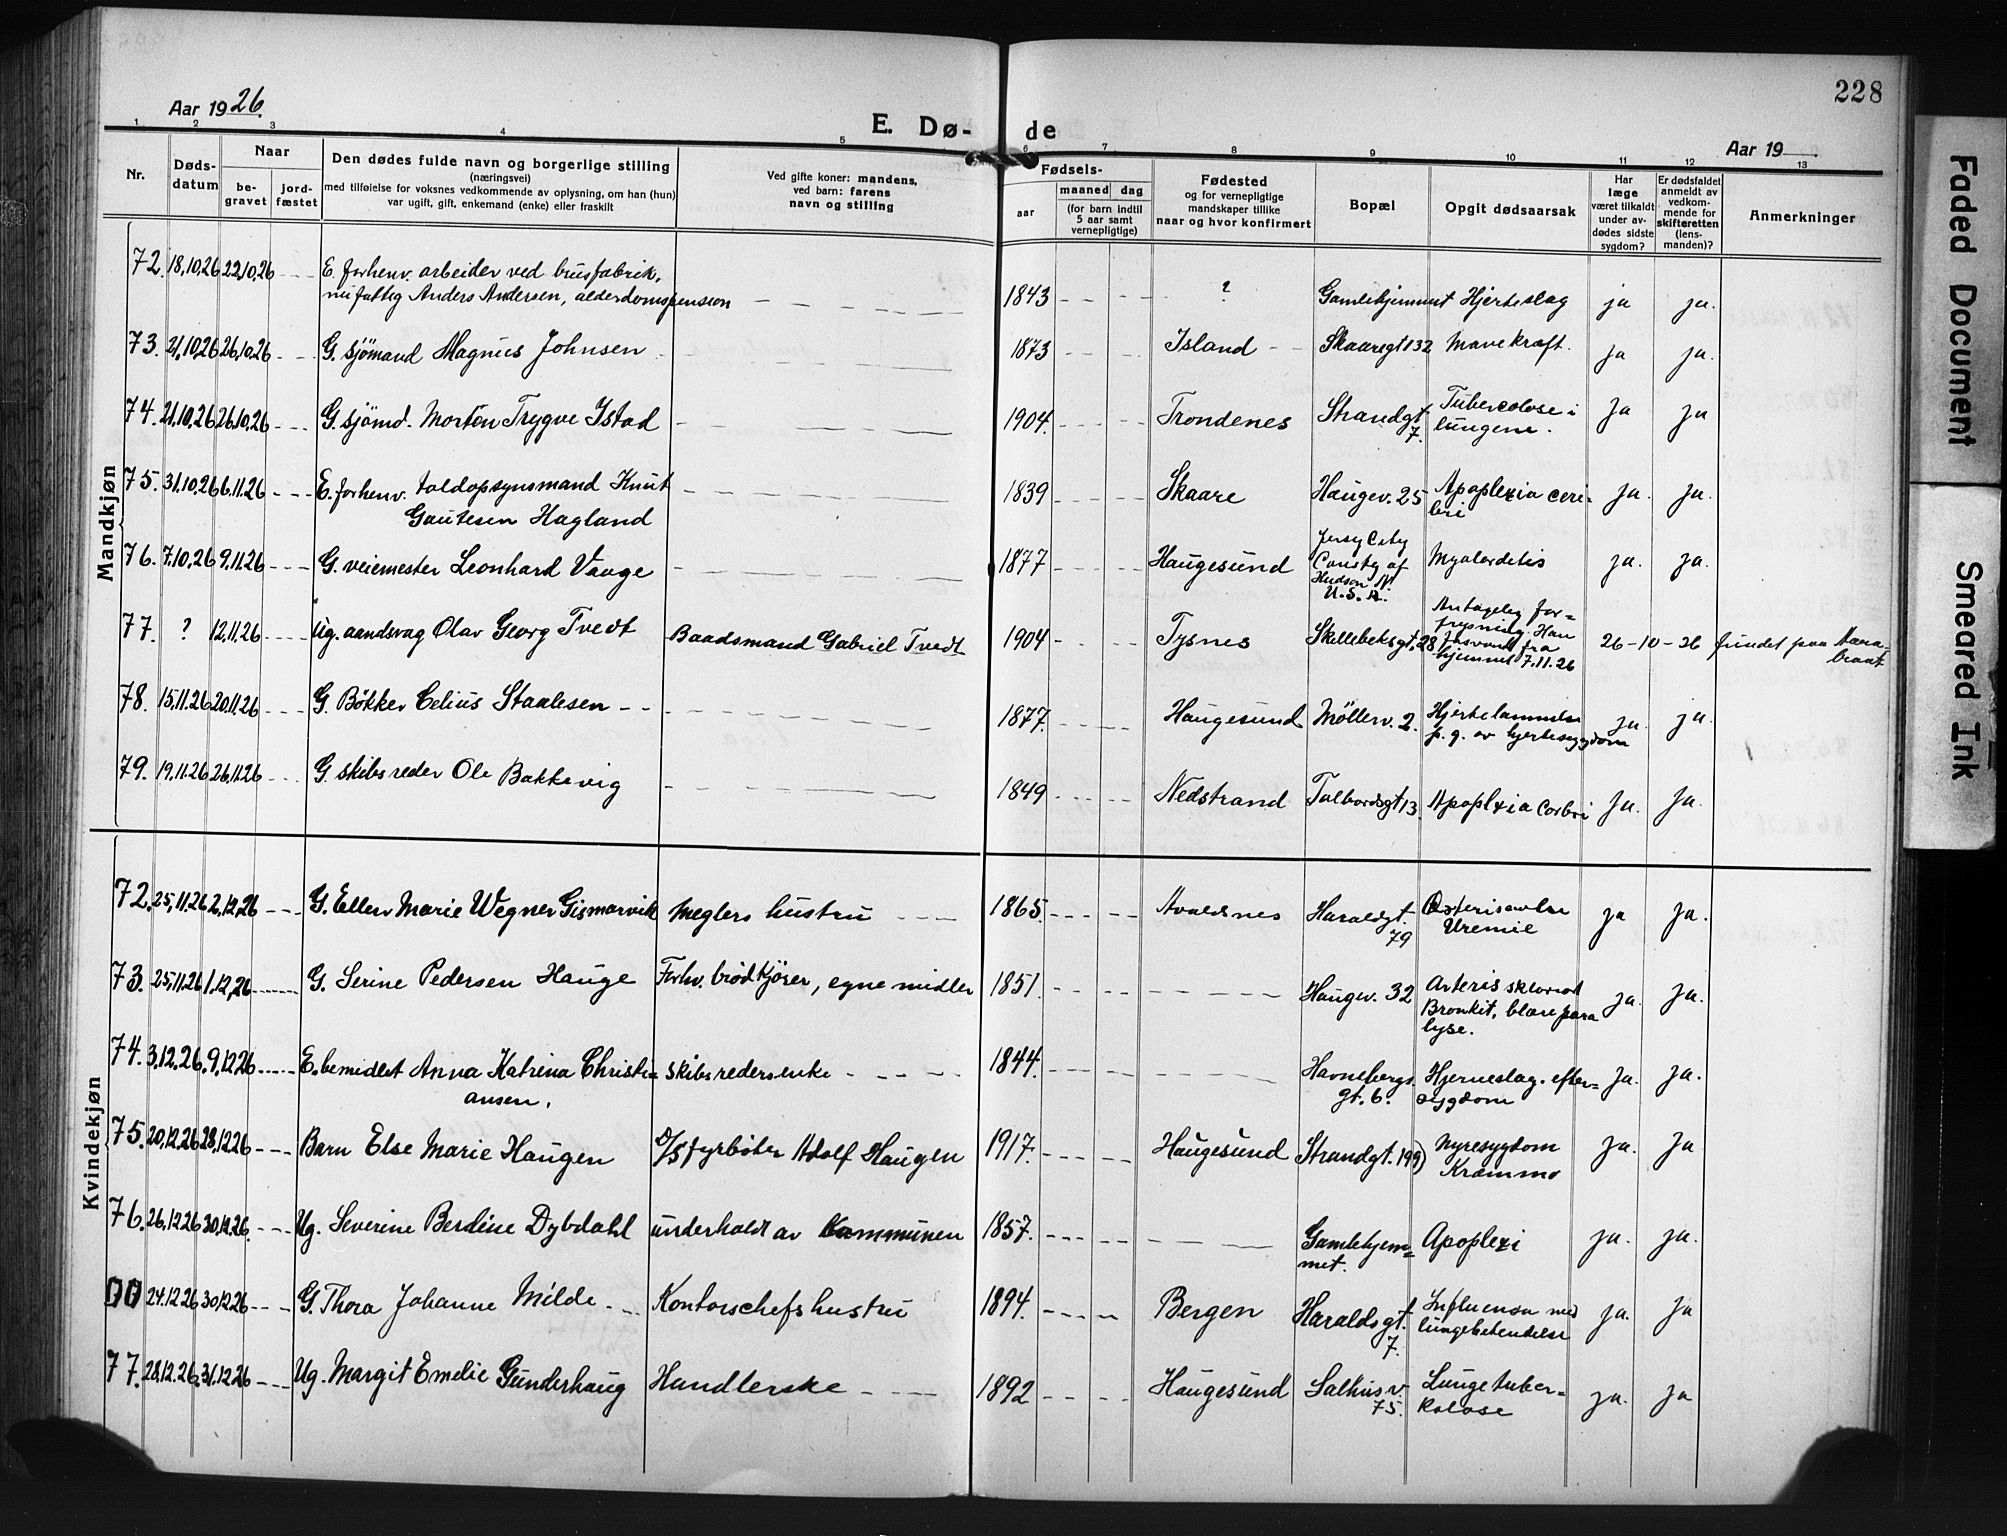 228
Aar 1926.
E. Dø- de
Aar 19
1 2 3 4 5 6 7 8 9 10 11 12 13
Nr.
Døds-datum
Naar
be-gravet
jord-fæstet
Den dødes fulde navn og borgerlige stilling
(næringsvei)
med tilføielse for voksnes vedkommende av oplysning, om han (hun)
var ugift, gift, enkemand (enke) eller fraskilt
Ved gifte koner: mandens,
ved barn: farens
navn og stilling
Fødsels-
aar
maaned dag
(for barn indtil
5 aar samt
vernepligtige)
Fødested
og for vernepligtige
mandskaper tillike
naar og hvor konfirmert
Bopæl
Opgit dødsaarsak
Har
læge
været tilkaldt
under av-
dødes sidste
sygdom?
Er dødsfaldet
anmeldt av
vedkom-
mende for
skifteretten
(lens-
manden)?
Anmerkninger
Mandkjøn
72. 18,10,26 22,10,26 E. forhenv. arbeider ved brusfabrik, 1843 ? Gamlehjemmet Hjerteslag ja ja.
nu fattig Anders Andersen, alderdomspension
73. 21,10,26 26,10,26 G. sjømand Magnus Johnsen 1873 Island Skaaregt 132 Mavekræft. ja ja.
74. 21,10,26 26,10,26 G. sjømd. Morten Trygve Istad 1904. Trondenes Strandgt. 7. Tubercolose i ja ja
lungene.
75. 31.10.26 6.11.26 E. forhenv. toldopsynsmand Knut 1839 Skaare Haugev. 25 Apoplexia ceri- ja. ja.
Gautesen Hagland bri
76. 7.10.26 9.11.26 G. veiemester Leonhard Vaage 1877 Haugesund Jersy City ja. ja.
County of
Hudson N.
U.S.A.
77. ? 12.11.26 Ug. aandsvag Olav Georg Tvedt Baadsmand Gabriel Tvedt 1904 Tysnes Skillebeksgt. 28 Antagelig for-
frysning. Han
forsvandt fra
hjemmet 7.11.26
26-10-26 fundet paa
78. 15.11.26 20.11.26 G. Bøkker Celius Staalesen 1877. Haugesund Møllerv. 2. Hjertelammelse ja. ja.
p. g. av hjertesygdom
79. 19.11.26 26.11.26 G. skibsreder Ole Bakkevig 1849 Nedstrand Apoplexia Ja. Ja.
Kvindekjøn
72. 25,11.26 2,12,26 G. Ellen Marie Wegner Gismarvik Meglers hustru 1865. Avaldsnes Haraldgt. 79 ja ja.
Uremie
73. 25,11.26 1.12,26 G. Serine Pedersen Hauge Forhv. brødkjører, egne midler 1851. Haugev. 32 ja. ja.
Bronkit, blærepara
lyse.
74. 3.12.26. 9.12.26 E. bemidlet Anna Katrina Christi= skibsredersenke 1844. Havnebergs Hjerneslag. efter- ja. ja.
ansen. gt. 6. sygdom
75. 20.12.26 28.12.26 Barn Else Marie Haugen D/S fyrbøter Adolf Haugen 1917. Haugesund Strandgt. 199) Nyresygdom ja. ja
76. 26.12.26 30.12.26. Ug. Severine Berdine Dybdahl underholdt av Kommunen 1857. Gamlehjem= Apoplexi ja. ja.
met.
24.12.26 30.12.26 G. Thora Johanne Milde Kontorschefs hustru 1894. Bergen Haraldsgt. 7. Influensa med ja. ja
lungebetendelse
77. 28.12.26. 31.12.26 Ug. Margit Emelie Gunderhaug Handlerske 1892 Haugesund Salhusv. 75. Lungetuber= ja. ja
kolose
Faded Document
Smeared Ink